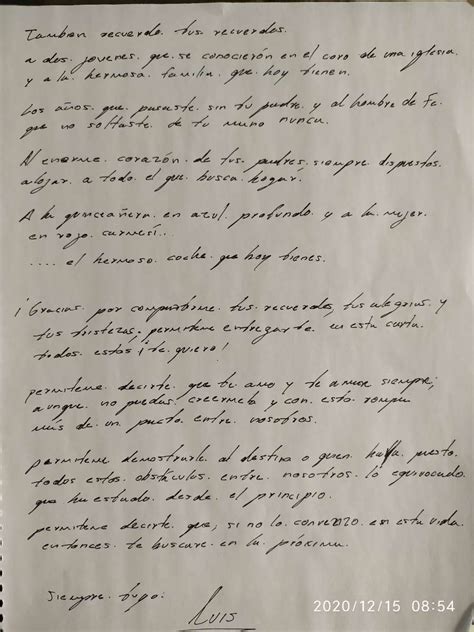 También recuerdo tus recuerdos.
a dos jovenes que se conocierón en el coro de una iglesia
y a la hermosa familia que hoy tienen.
Los años que pasaste sin tu padre y al hombre de Fe
que no soltaste de tu mano nunca.
Al enorme corazón de tus padres siempre dispuestos
alojar a todo el que busca hogar.
A la quinceañera en azul profundo y a la mujer
en rojo carmesí...
.... el hermoso coche que hoy tienes.
¡Gracias por compartirme tus recuerdos, tus alegrias y
tus tristezas, permiteme entregarte en esta carta
todos estos ¡te quiero!
permiteme decirte que te amo y te amare siempre;
aunque no puedas creermelo y con esto rompa
más de un pacto entre nosotros.
permiteme demostrarle al destino o quien haya puesto
todos estos obstáculos entre nosotros lo equivocado
que ha estado desde el principio.
permiteme decirte que, si no lo convenzo en esta vida
entonces te buscare en la próxima.
Siempre tuyo:
Luis
2020/12/15 08:54